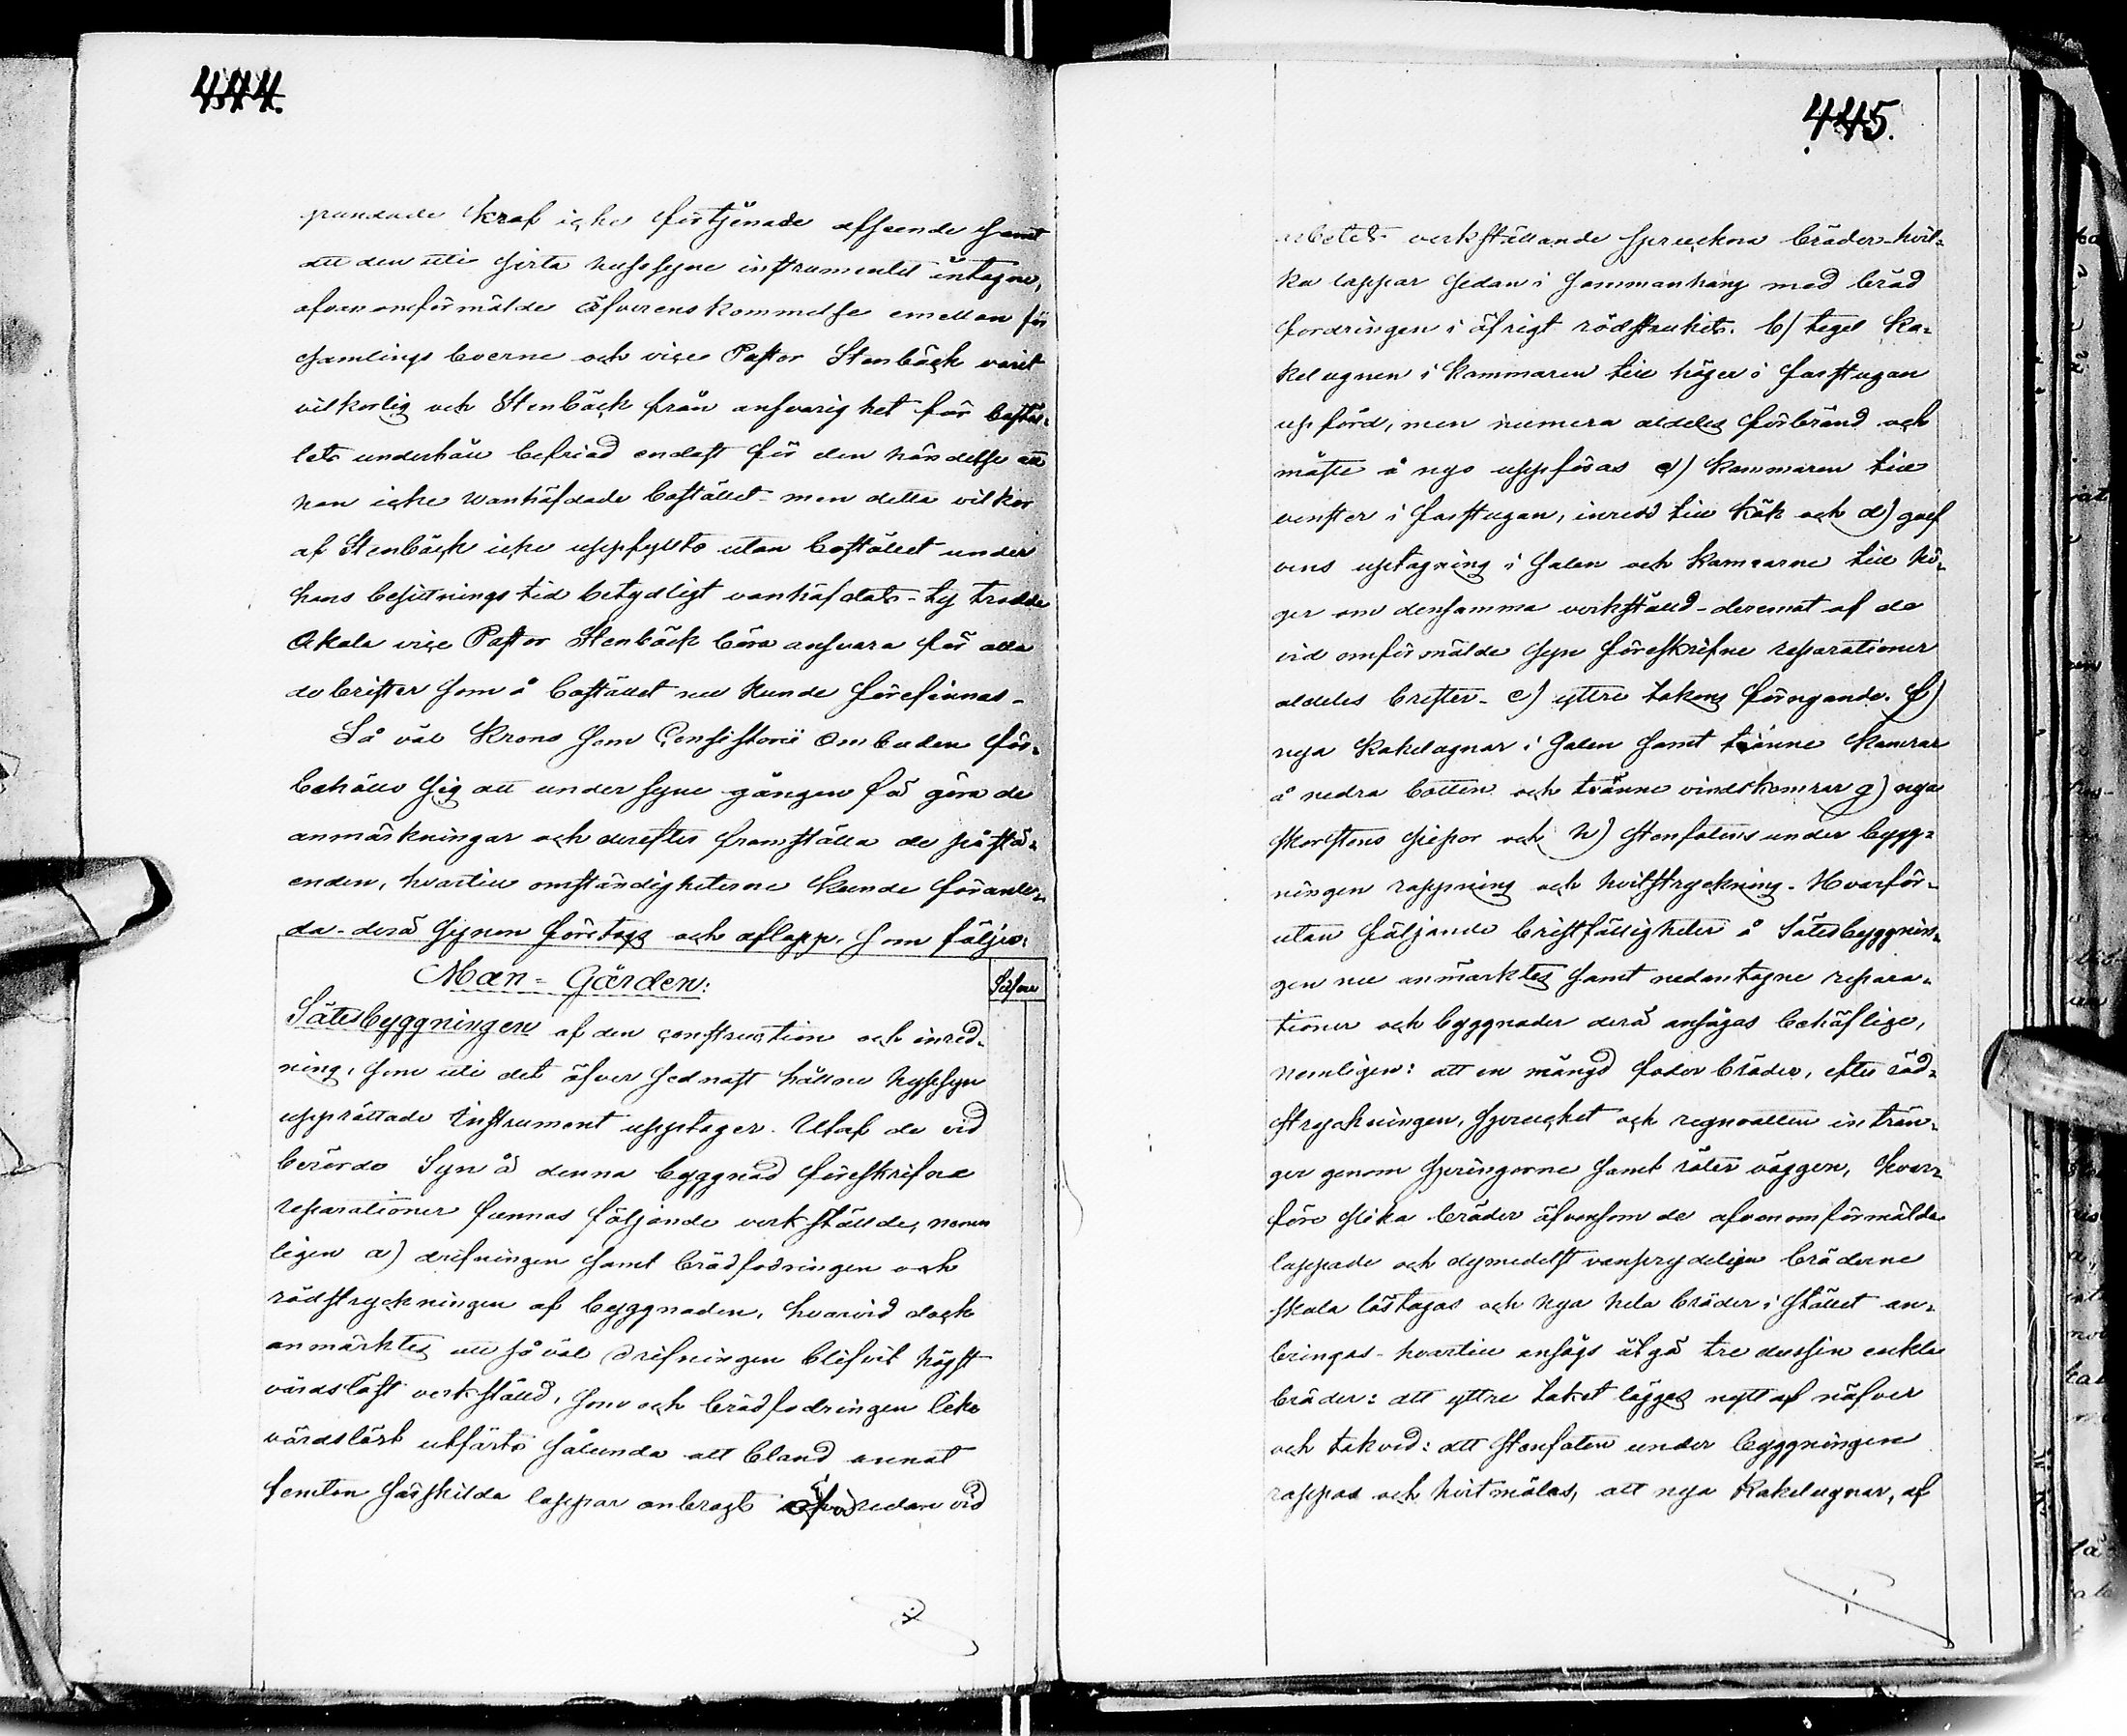 444.
grundade kraf icke förtjenade afseende samt
att den uti sista husesyne instrumentet intagne,
ofvanomförmälde öfverenskommelse emellan för
samlings boerne och vice Pastor Stenbäck varit
vilkorlig och Stenbäck från ansvarighet för bostäl-
lets underhåll befriad endast för den händelse att
han icke wanhäfdade bostället - men detta vilkor
af Stenbäck icke uppfyllts utan bostället under
hans besittningstid betydligt vanhäfdats - ty trodde
Akola vice Pastor Stenbäck böra ansvara för alla
de brister som å bostället nu kunde förefinnas -
Så väl Krono som Consistorii Ombuden för-
behöllo sig att under syne gången få göra de
anmärkningar och derefter framställa de påstå-
enden, hvartill omständigheterne kunde föranle-
da - derå synen företogs och aflopp, som följer:
Man-Gården:
Sätesbyggningen af den construction och inred-
ning, som uti det öfver sednast hållne hussyn
upprättade instrument upptages. Utaf de vid
berörde Syn å denna byggnad föreskrifne
reparationer funnos följande verkställde, nem
ligen a) drifningen samt brädfodringen och
rödstryckningen af byggnaden, hvarvid dock
anmärktes att så väl drifningen blifvit högst
vårdslöst verkställd, som och brädfodringen lika
vårdslöst utförts sålunda att bland annat
femton särskilda lappar anbragts redan vid
445.
arbetets verkställande spruckna bräder - hvil-
ka lappar sedan i sammanhang med bräd
fordringen i öfrigt rödstrukits. b) tegel ka-
kelugnen i kammaren till höger i farstugan
uppförd, men numera aldeles förbränd och
måste å nyo uppföras c) kammaren till
venster i farstugan, inredd till kök och d) golf
vens uptagning i salen och kamrarne till hö-
ger om densamma verkställd - deremot af de
vid omförmälde syn föreskrifne reparationer
aldeles brister - e) yttre takens förnyande. f)
nya kakelugnar i salen samt tvänne kamrar
å nedra botten och tvänne vindskamrar g) nya
skorstens piepor och h) stenfotens under bygg-
ningen rappning och hvitstryckning - Hvarför-
utan följande bristfälligheter å Sätesbyggnin-
gen nu anmärktes samt nedantagne repara-
tioner och byggnader derå ansågos behöflige,
nemligen: att en mängd foder bräder, efter röd-
strykningen, spruckit och regnvatten inträn-
ger genom springorne samt röter väggen, hvar-
före slika bräder äfvensom de ofvanomförmälda
lappade och dymedelst vanprydeligen bräderne
skola löstagas och nya hela bräder i stället an-
bringas - hvartill ansågs åtgå tre dussin enkla
bräder: att yttre taket lägges nytt af näfver
och takved: att stenfoten under byggningen
rappas och hvitmålas, att nya kakelugnar, af